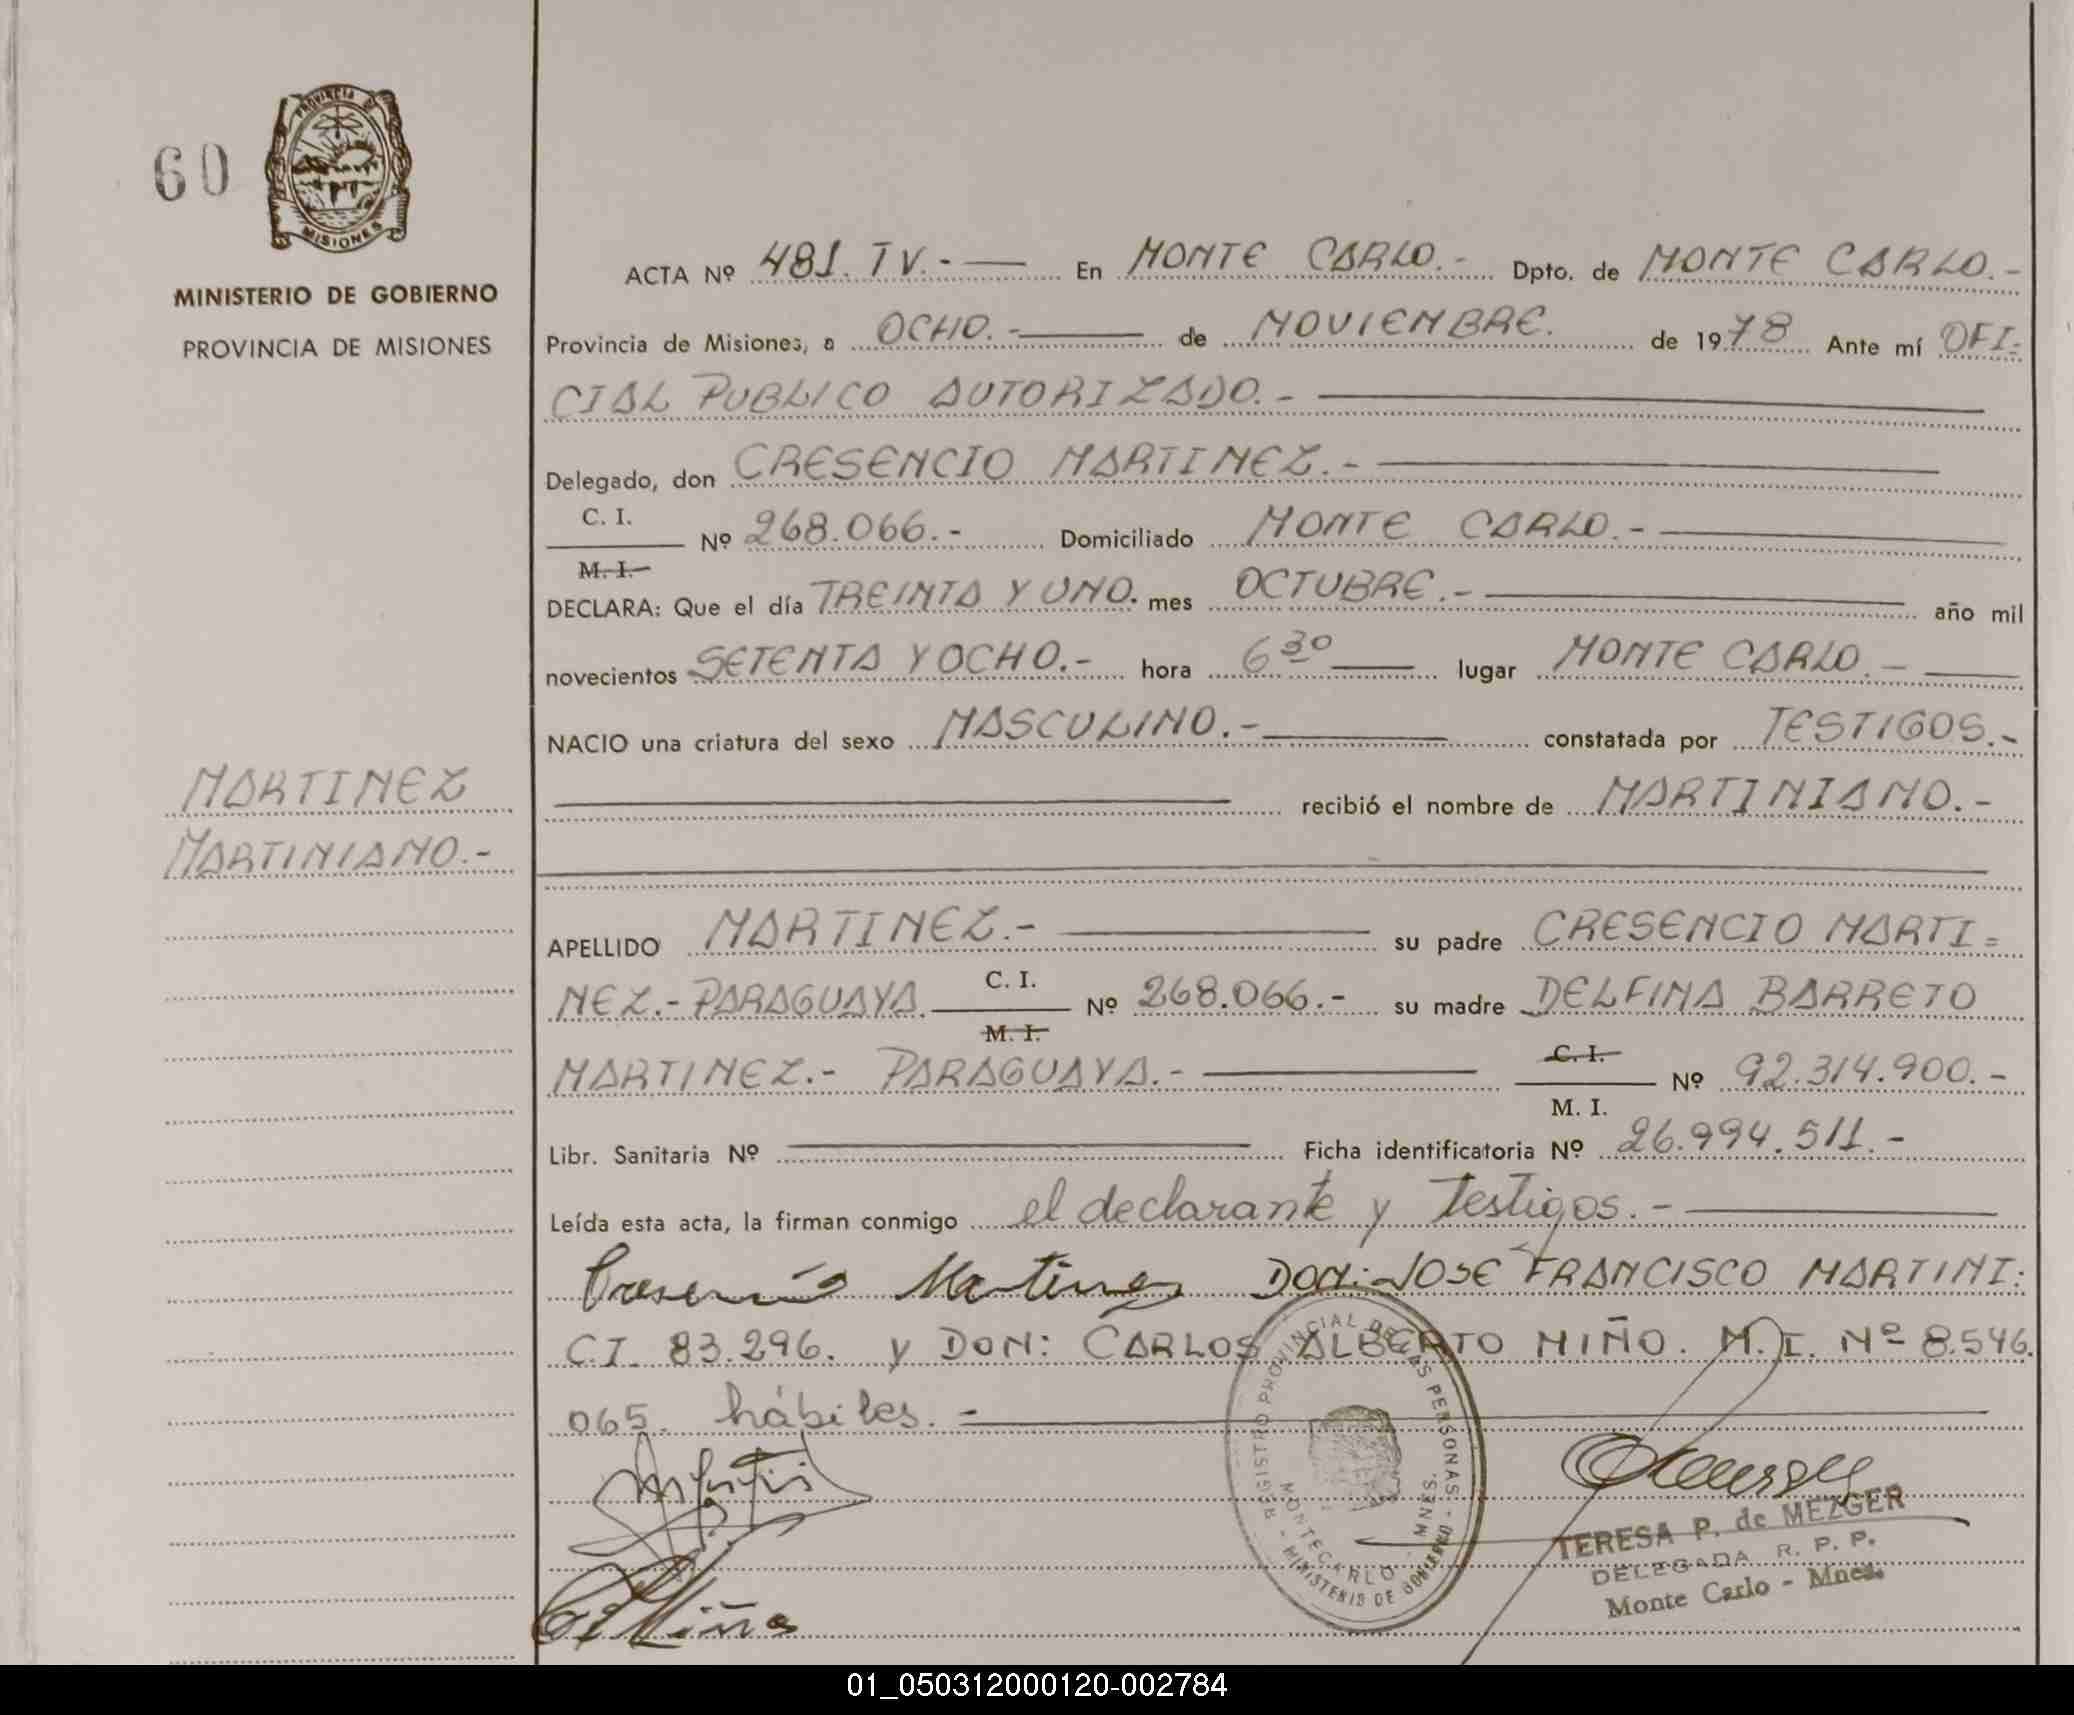 60
PROVINCIA DE
MISIONES
MINISTERIO DE GOBIERNO
PROVINCIA DE MISIONES
ACTA Nº 481. TV.- En MONTE CARLO.- Dpto. de MONTE CARLO.-
Provincia de Misiones, a OCHO.- de NOVIEMBRE. de 1978 Ante mí OFI-
CIAL PUBLICO AUTORIZADO.-
Delegado, don CRESENCIO MARTINEZ.-
C. I.
Nº 268.066.- Domiciliado MONTE CARLO.-
M. I.
DECLARA: Que el día TREINTA Y UNO. mes OCTUBRE.- año mil
novecientos SETENTA Y OCHO.- hora 6 30 lugar MONTE CARLO.-
NACIO una criatura del sexo MASCULINO.- constatada por TESTIGOS.-
recibió el nombre de MARTINIANO.-
MARTINEZ
MARTINIANO.-
APELLIDO MARTINEZ.- su padre CRESENCIO MARTI=
NEZ.- PARAGUAYA. C. I. M. I. Nº 268.066.- su madre DELFINA BARRETO
MARTINEZ.- PARAGUAYA.- C. I. M. I. Nº 92.314.900.-
Libr. Sanitaria Nº Ficha identificatoria Nº 26.994.511.-
Leída esta acta, la firman conmigo el declarante y Testigos.-
Cresencio Martinez DON: JOSE FRANCISCO MARTINI:
C.I. 83.296. y DON: CARLOS ALBERTO NIÑO. M.I. Nº 8.546.
065. hábiles.-
REGISTRO PROVINCIAL DE LAS PERSONAS - MINISTERIO DE GOBIERNO
MONTECARLO - MNES.
TERESA P. de MEZGER
DELEGADA R. P. P.
Monte Carlo - Mnes.
01_050312000120-002784